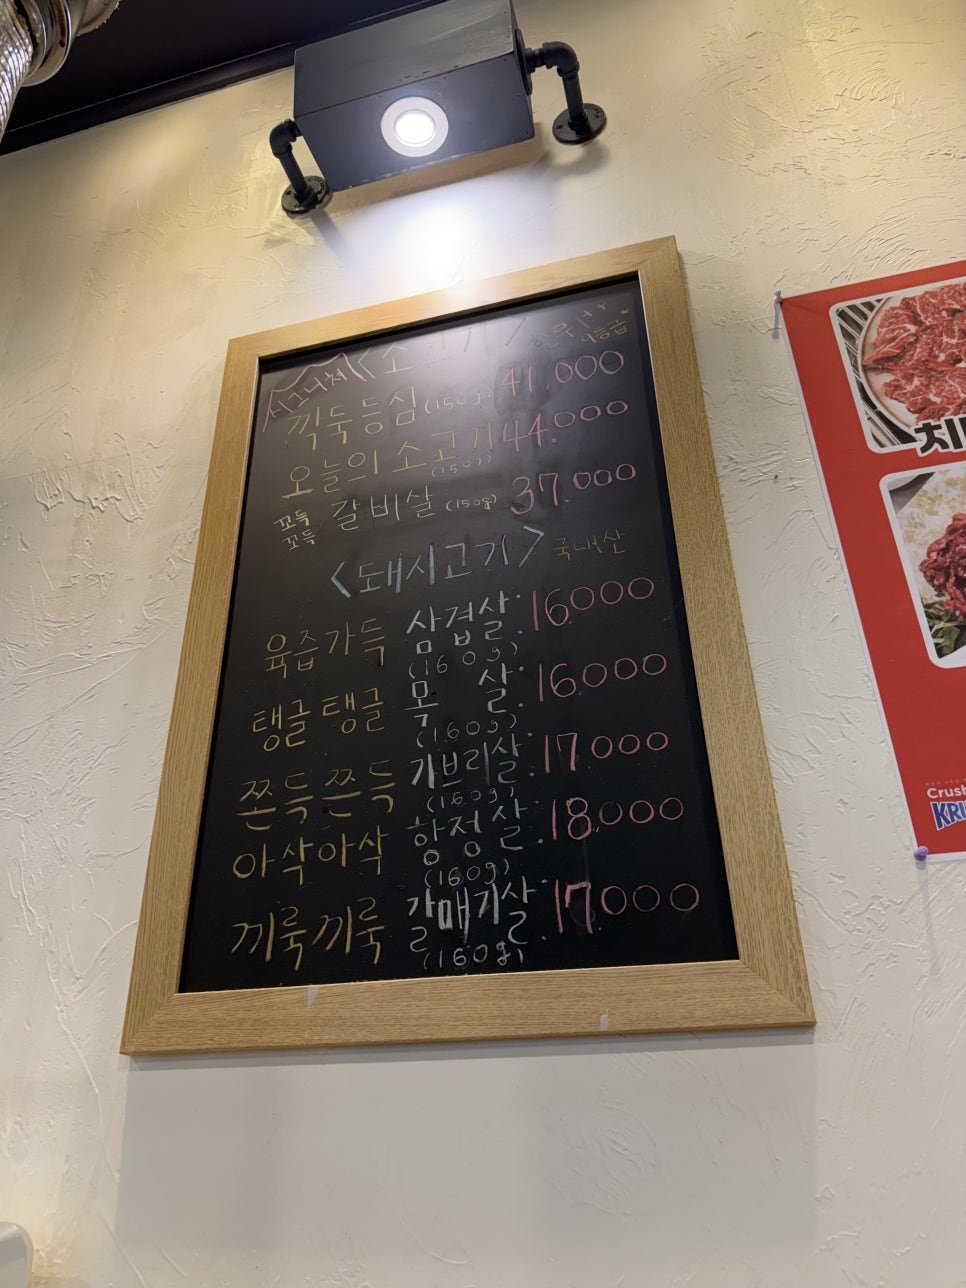 <소고기> 한우 1++ 9등급
끽둑등심 (150g) 41.000
오늘의 소고기 (150g) 44.000
꼬득꼬득 갈비살 (150g) 37.000
<돼지고기> 국내산
육즙가득 삼겹살. 16000
(160g)
탱글탱글 목살. 16.000
(160g)
쫀득쫀득 가브리살. 17.000
(160g)
아삭아삭 항정살. 18.000
(160g)
끼룩끼룩 갈매기살. 17.000
(160g)
Crush